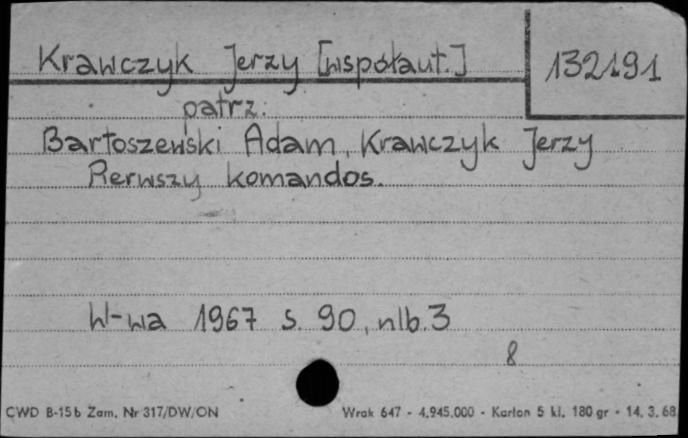 Krawczyk Jerzy [współaut.]
132191
patrz:
Bartoszewski Adam, Krawczyk Jerzy
Pierwszy komandos.
W-wa 1967 s. 90, nlb. 3
8
CWD B-15b Zam. Nr 317/DW/ON Wrak 647 - 4.945.000 - Karton 5 kl. 180 gr - 14. 3. 68